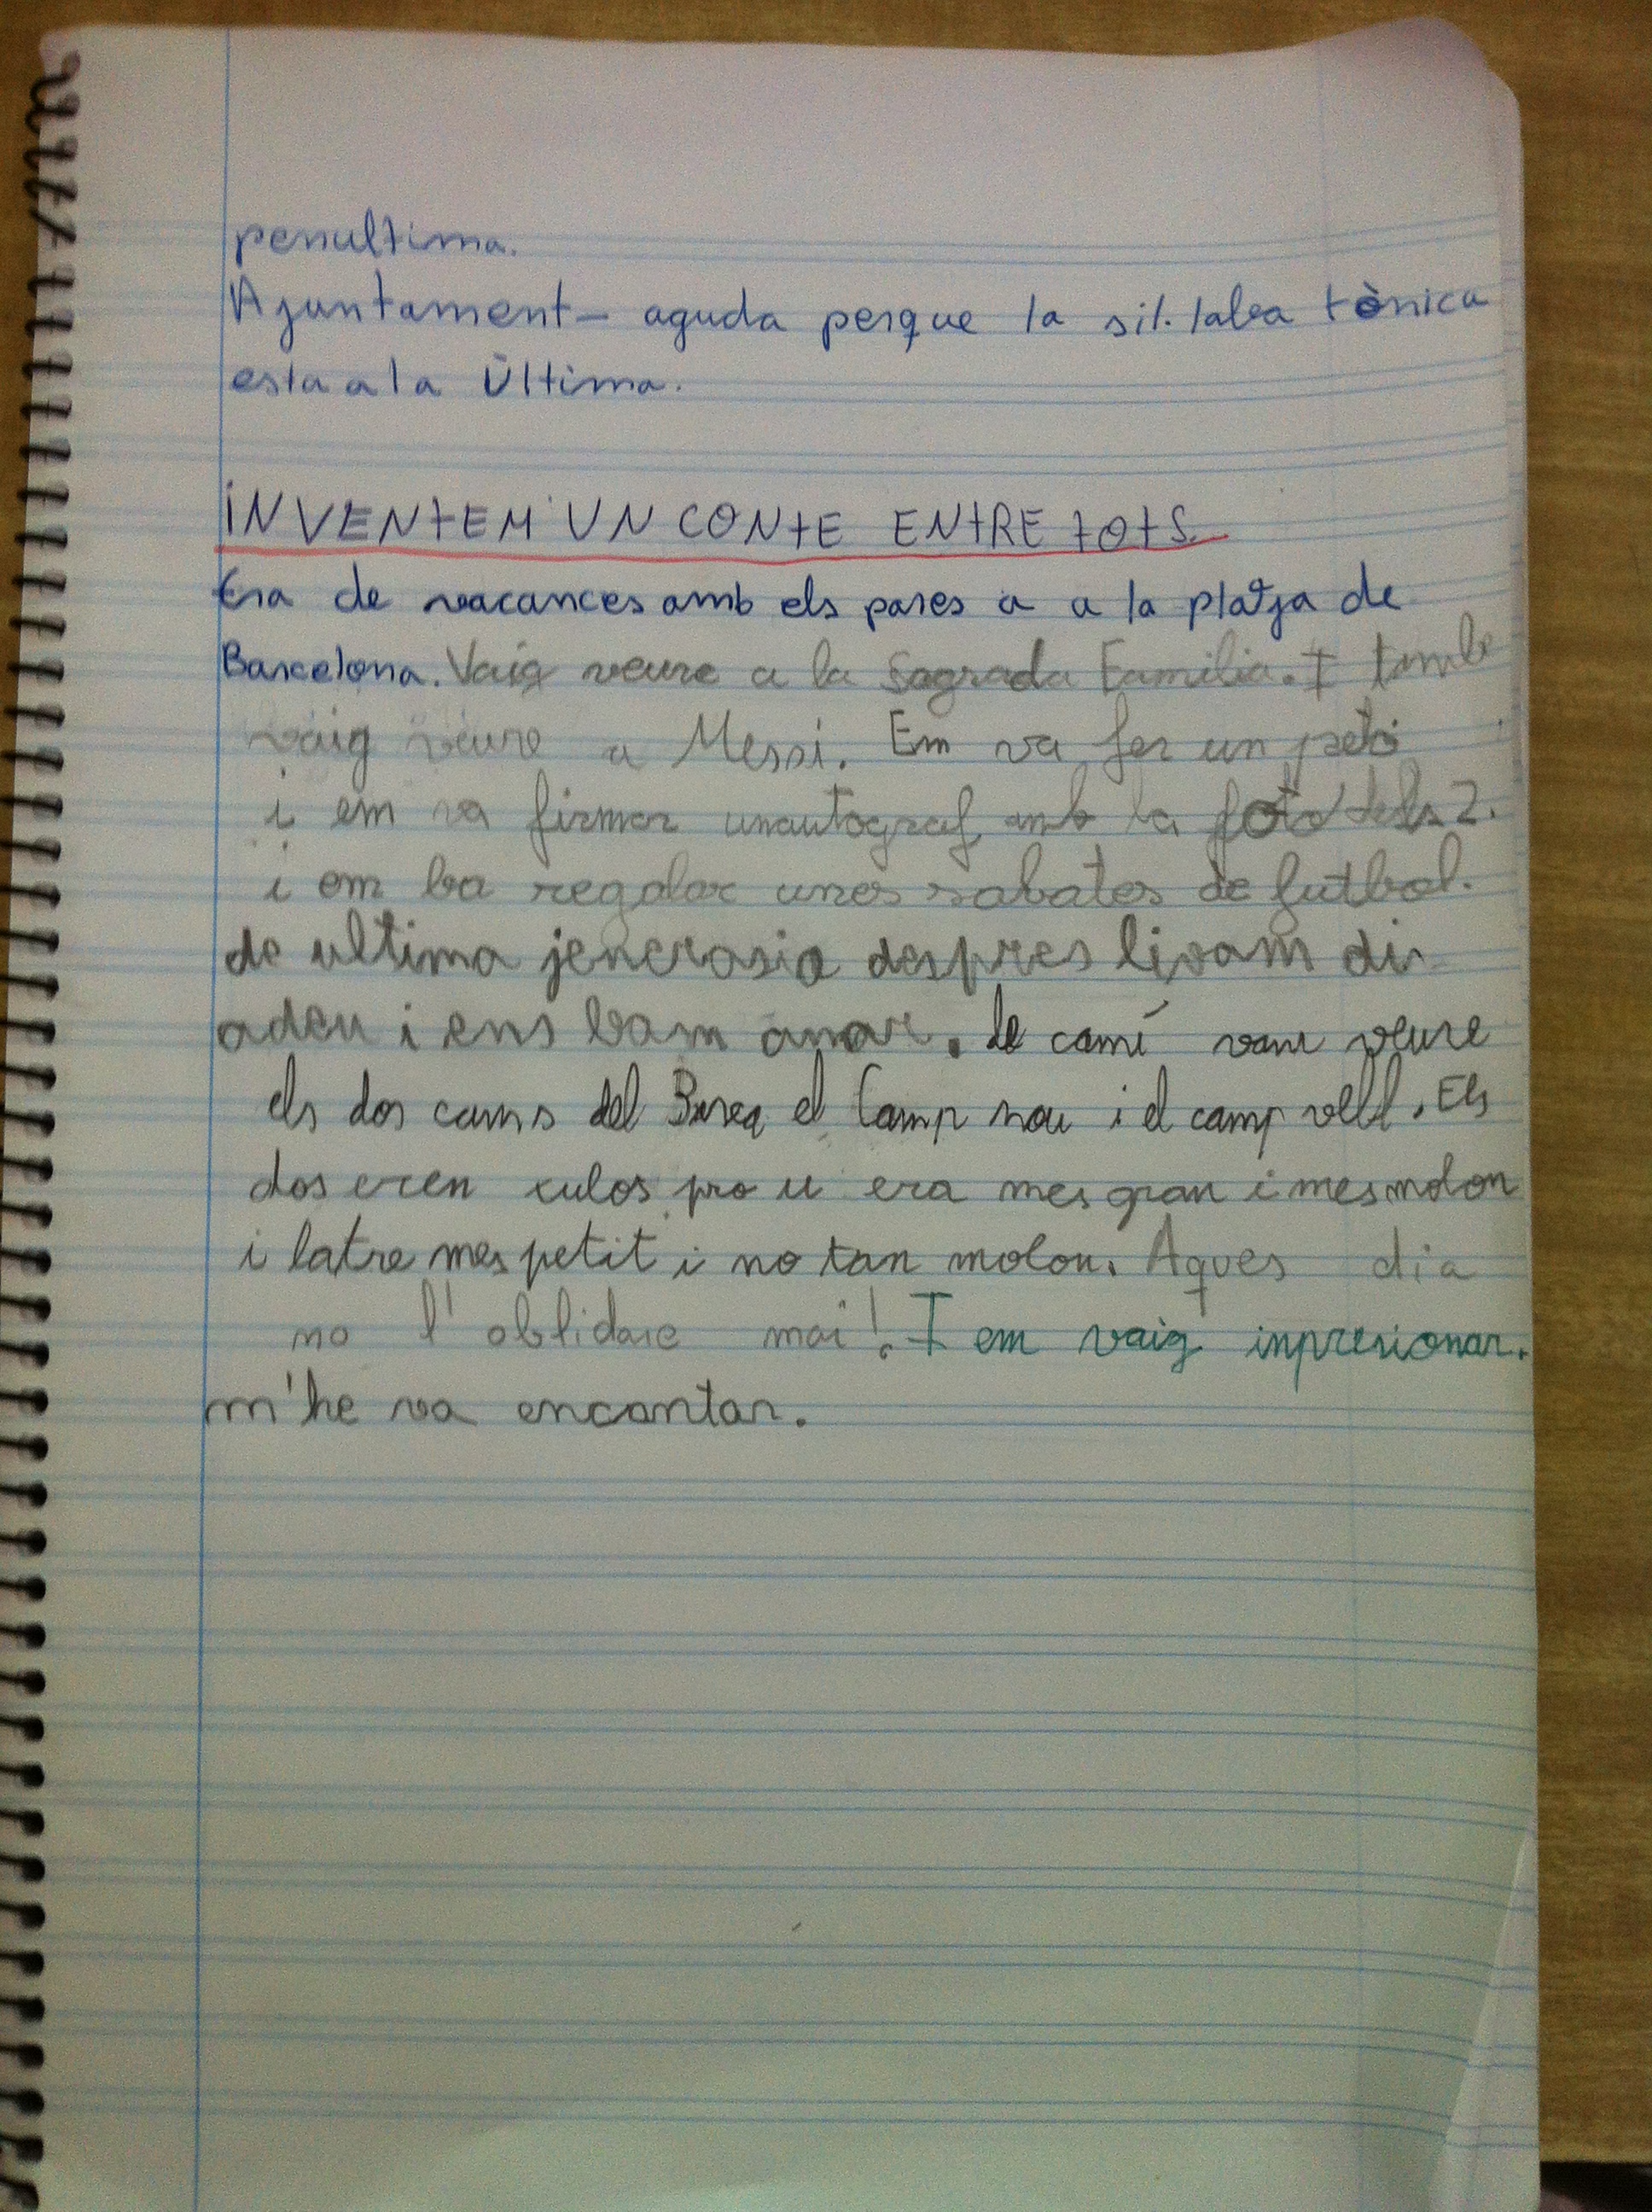 penultima.
Ajuntament - aguda perque la sil·laba tònica
esta a la Última.
INVENTEM UN CONTE ENTRE TOTS.
Era de vacances amb els pares a a la platja de
Barcelona. Vaig veure a la Sagrada Familia. I tambe
vaig veure a Messi. Em va fer un petó
i em va firmar unautograf amb la foto dels 2.
i em ba regalar unes sabates de futbol.
de ultima jenerasio despres livam dir
adeu i ens bam anar. de camí vam veure
els dos cams del Barça el Camp nou i el camp vell. Els
dos eren xulos pro u era mes gran i mes molon
i latre mes petit i no tan molon. Aques dia
no l'oblidare mai! I em vaig inpresionar.
m'he va encantar.